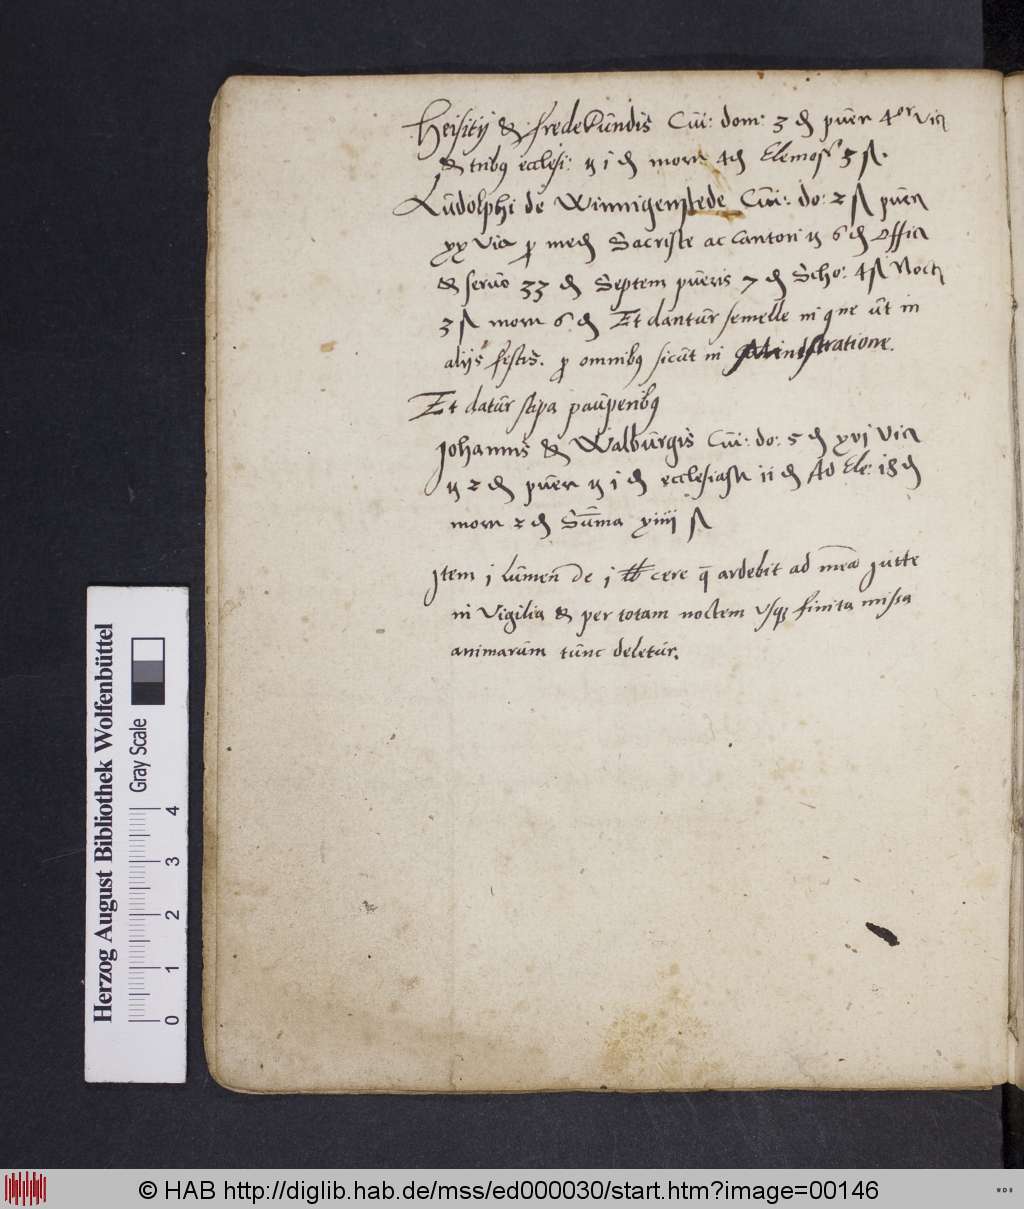 Heisitij & fredekundis Cui: dom: 3 ₰ puer 4or vic
& tribꝫ ecclesi: ij i ₰ morr 4₰ Elemos 5 ſ.
Ludolphi de Winnigenstede Cui: do: 2 ſ puer
xx vic p med Sacriste ac Cantori ij 6 ₰ offic
& servo 33 ₰ Septem pueris 7 ₰ Scho: 4 ſ Noct
3 ſ morr 6 ₰ Et dantur semelle ni qne ut in
aliis festis. p omnibꝫ sicut in Ministratione.
Et datur stipa pauperibꝫ
Johannis & Walburgis Cui: do: 5 ₰ xvj vic
ij 2 ₰ puer ij i ₰ ecclesiast ii ₰ Ad Ele: 18 ₰
morr 2 ₰ Suma xiiij ſ
Item j lumen de j lb cere q ardebit ad mea jutte
in Vigilia & per totam noctem usqꝫ finita missa
animarum tunc deletur.
Herzog August Bibliothek Wolfenbüttel
Gray Scale
0 1 2 3 4
© HAB http://diglib.hab.de/mss/ed000030/start.htm?image=00146